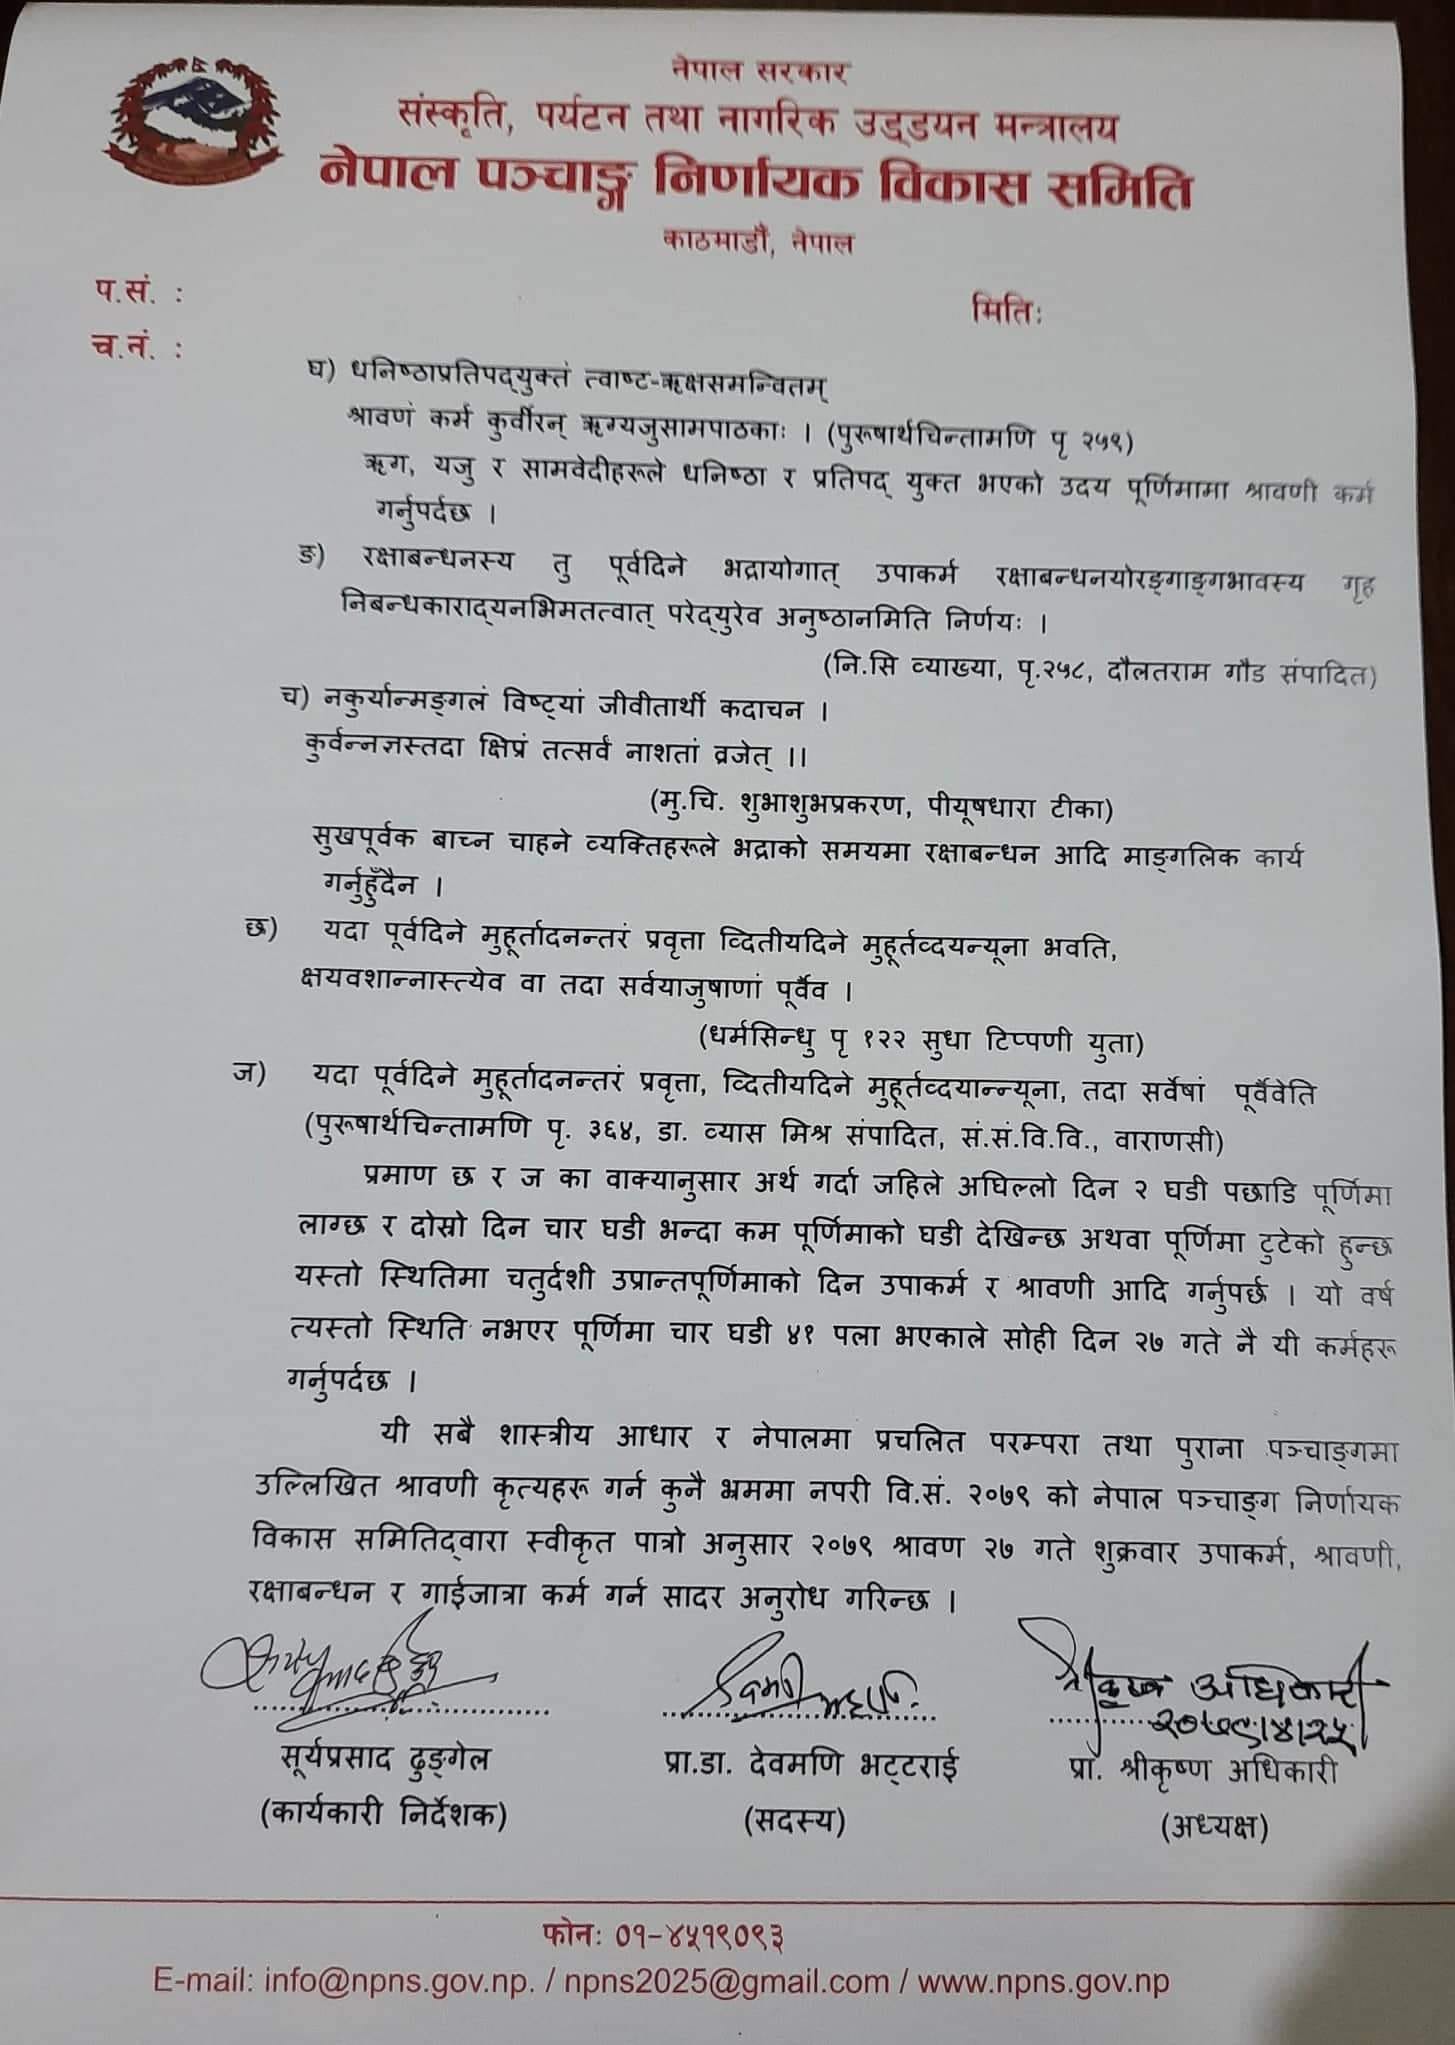 नेपाल सरकार
संस्कृति, पर्यटन तथा नागरिक उड्डयन मन्त्रालय
नेपाल पञ्चाङ्ग निर्णायक विकास समिति
काठमाडौं, नेपाल
प.सं. :
मितिः
च.नं. :
घ) धनिष्ठाप्रतिपद्युक्तं त्वाष्ट-ऋक्षसमन्वितम्
श्रावणं कर्म कुर्वीरन् ऋग्यजुसामपाठकाः । (पुरूषार्थचिन्तामणि पृ २५९)
ऋग, यजु र सामवेदीहरूले धनिष्ठा र प्रतिपद् युक्त भएको उदय पूर्णिमामा श्रावणी कर्म
गर्नुपर्दछ ।
ङ) रक्षाबन्धनस्य तु पूर्वदिने भद्रायोगात् उपाकर्म रक्षाबन्धनयोरङ्गाङ्गभावस्य गृह
निबन्धकाराद्यनभिमतत्वात् परेद्युरेव अनुष्ठानमिति निर्णयः ।
(नि.सि व्याख्या, पृ.२५८, दौलतराम गौड संपादित)
च) नकुर्यान्मङ्गलं विष्ट्यां जीवीतार्थी कदाचन ।
कुर्वन्नज्ञस्तदा क्षिप्रं तत्सर्वं नाशतां व्रजेत् ।।
(मु.चि. शुभाशुभप्रकरण, पीयूषधारा टीका)
सुखपूर्वक बाच्न चाहने व्यक्तिहरूले भद्राको समयमा रक्षाबन्धन आदि माङ्गलिक कार्य
गर्नुहुँदैन ।
छ) यदा पूर्वदिने मुहूर्तादनन्तरं प्रवृत्ता व्दितीयदिने मुहूर्तव्दयन्यूना भवति,
क्षयवशान्नास्त्येव वा तदा सर्वयाजुषाणां पूर्वैव ।
(धर्मसिन्धु पृ १२२ सुधा टिप्पणी युता)
ज) यदा पूर्वदिने मुहूर्तादनन्तरं प्रवृत्ता, व्दितीयदिने मुहूर्तव्दयान्न्यूना, तदा सर्वेषां पूर्वैवेति
(पुरूषार्थचिन्तामणि पृ. ३६४, डा. व्यास मिश्र संपादित, सं.सं.वि.वि., वाराणसी)
प्रमाण छ र ज का वाक्यानुसार अर्थ गर्दा जहिले अघिल्लो दिन २ घडी पछाडि पूर्णिमा
लाग्छ र दोस्रो दिन चार घडी भन्दा कम पूर्णिमाको घडी देखिन्छ अथवा पूर्णिमा टुटेको हुन्छ
यस्तो स्थितिमा चतुर्दशी उप्रान्तपूर्णिमाको दिन उपाकर्म र श्रावणी आदि गर्नुपर्छ । यो वर्ष
त्यस्तो स्थिति नभएर पूर्णिमा चार घडी ४१ पला भएकाले सोही दिन २७ गते नै यी कर्महरू
गर्नुपर्दछ ।
यी सबै शास्त्रीय आधार र नेपालमा प्रचलित परम्परा तथा पुराना पञ्चाङ्गमा
उल्लिखित श्रावणी कृत्यहरू गर्न कुनै भ्रममा नपरी वि.सं. २०७९ को नेपाल पञ्चाङ्ग निर्णायक
विकास समितिद्वारा स्वीकृत पात्रो अनुसार २०७९ श्रावण २७ गते शुक्रवार उपाकर्म, श्रावणी,
रक्षाबन्धन र गाईजात्रा कर्म गर्न सादर अनुरोध गरिन्छ ।
श्रीकृष्ण अधिकारी
२०७९।४।२५
सूर्यप्रसाद ढुङ्गेल
प्रा.डा. देवमणि भट्टराई
प्रा. श्रीकृष्ण अधिकारी
(कार्यकारी निर्देशक)
(सदस्य)
(अध्यक्ष)
फोनः ०१-४५१९०९३
E-mail: info@npns.gov.np. / npns2025@gmail.com / www.npns.gov.np